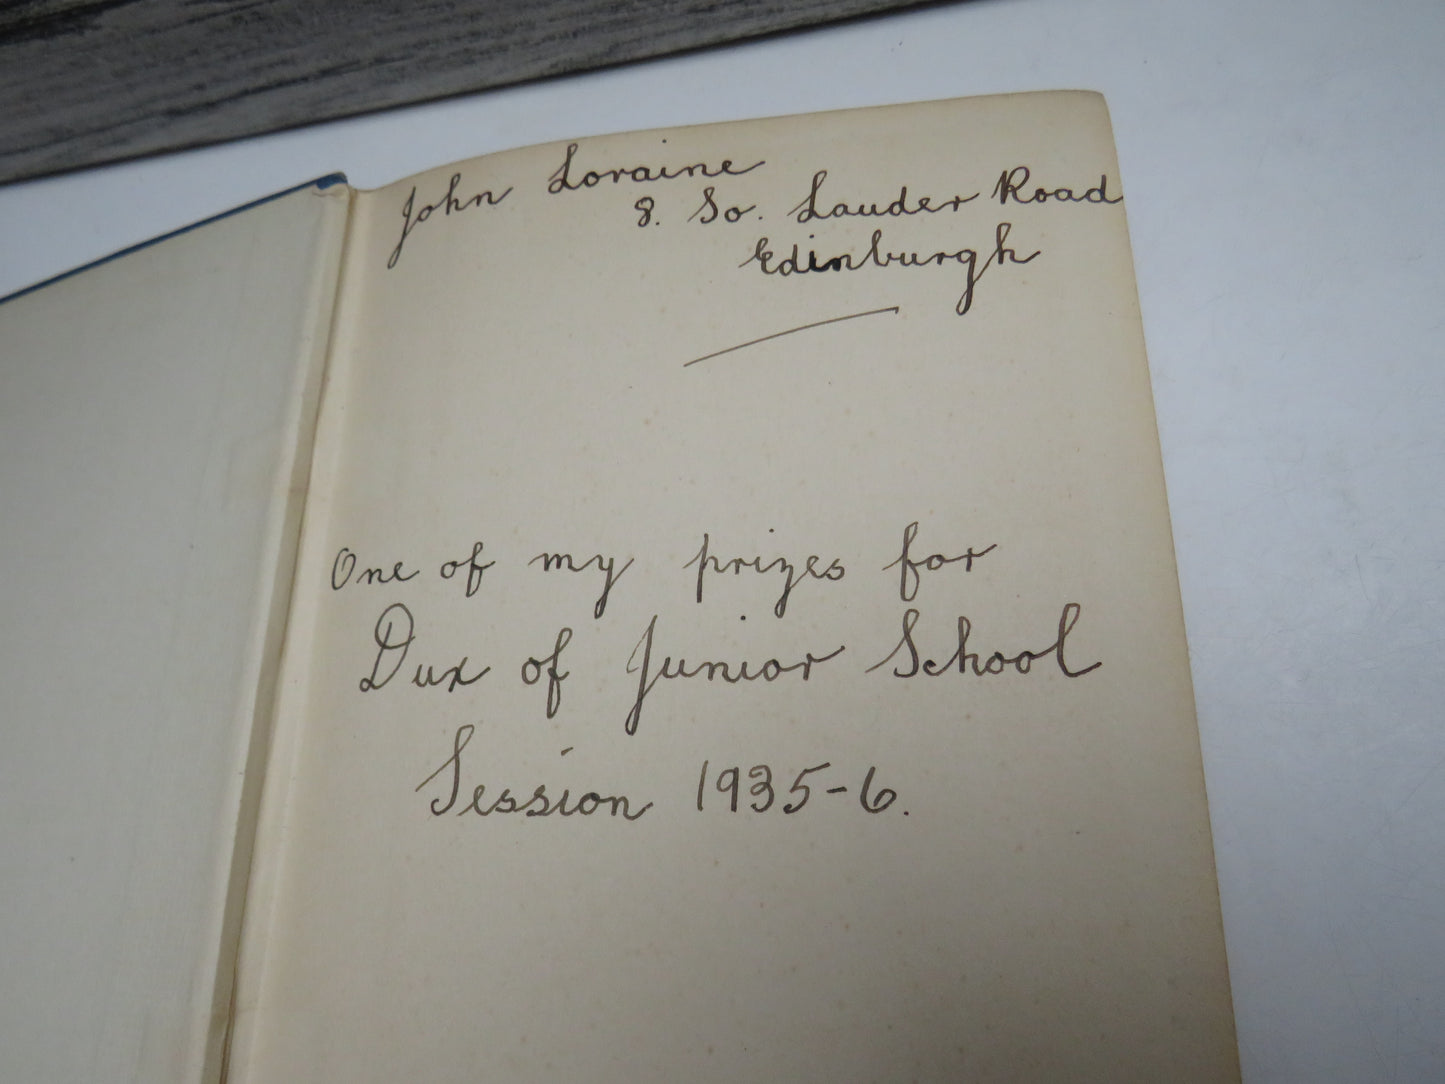 John Loraine
8. So. Lauder Road
Edinburgh
One of my prizes for
Dux of Junior School
Session 1935-6.